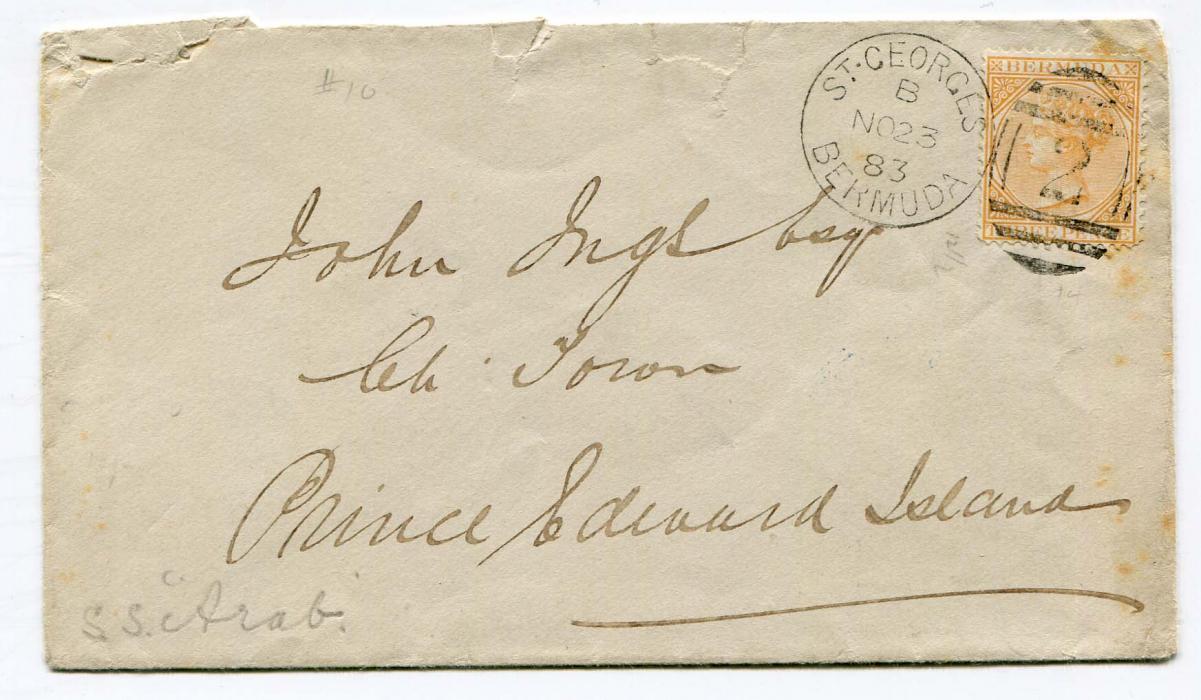 #10
ST. GEORGES
B
NO 23
83
BERMUDA
BERMUDA
2
THREE PENCE
John Ings Esq
Ch. Town
Prince Edward Island
S.S. "Arab."